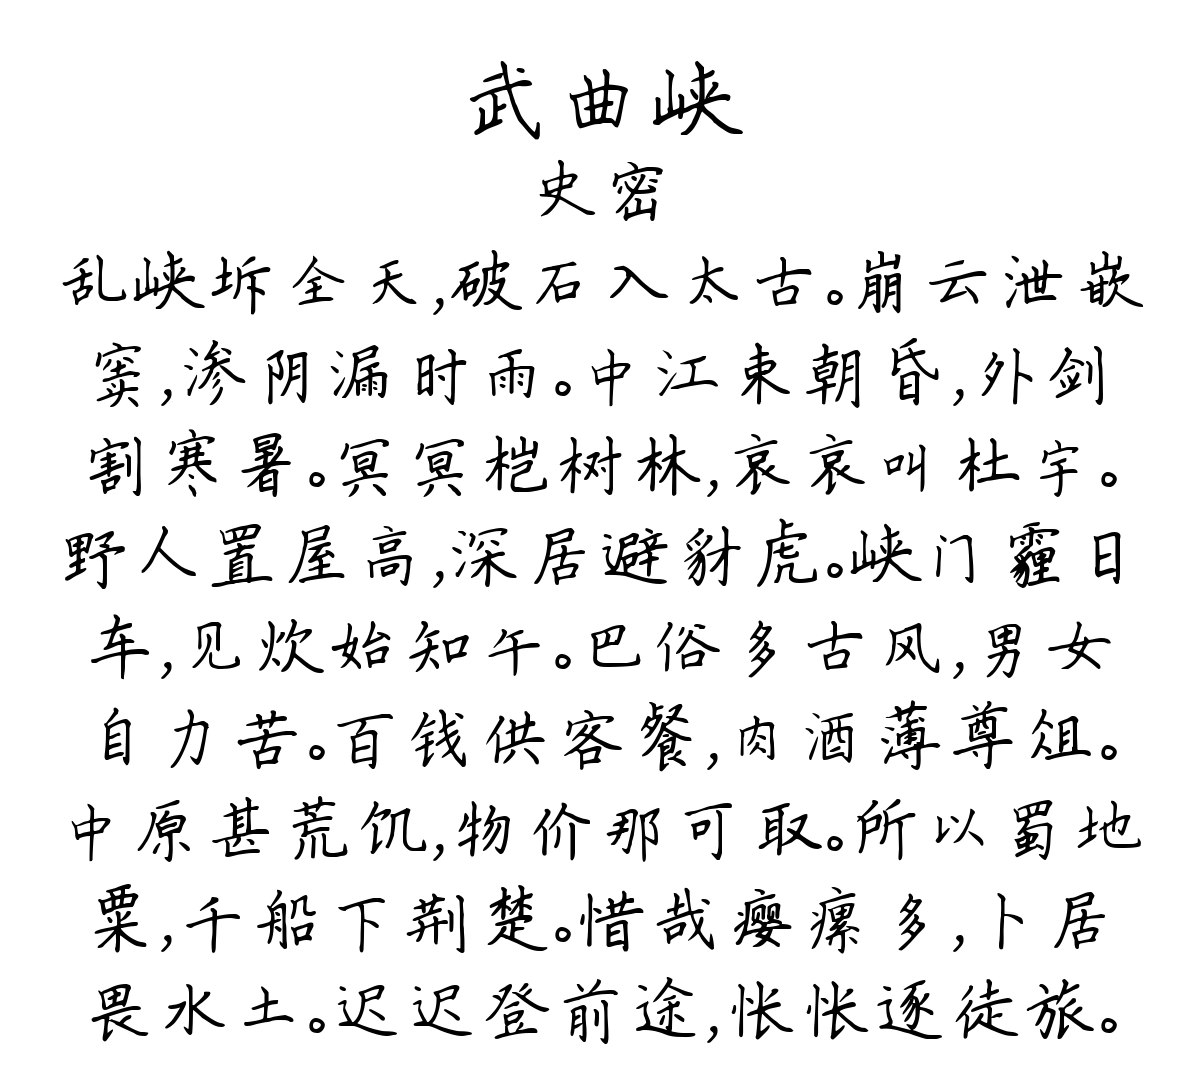 武曲峡
史密
乱峡坼全天,破石入太古。崩云泄嵌
窦,渗阴漏时雨。中江束朝昏,外剑
割寒暑。冥冥桤树林,哀哀叫杜宇。
野人置屋高,深居避豺虎。峡门霾日
车,见炊始知午。巴俗多古风,男女
自力苦。百钱供客餐,肉酒薄尊俎。
中原甚荒饥,物价那可取。所以蜀地
粟,千船下荆楚。惜哉瘿瘰多,卜居
畏水土。迟迟登前途,怅怅逐徒旅。